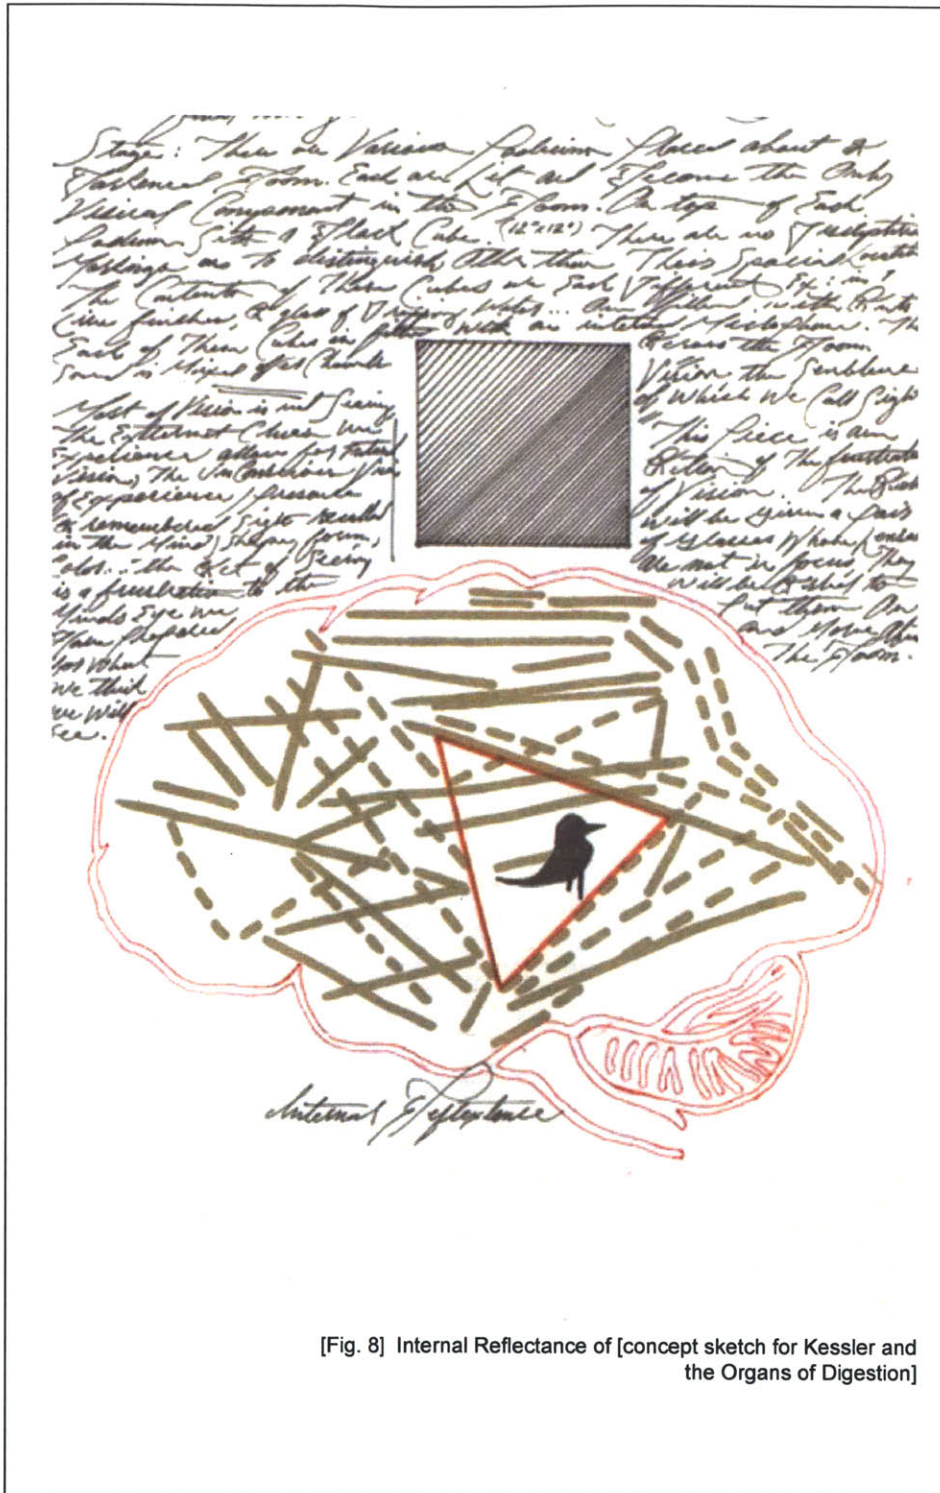 Stage: There are Various Podiums Placed about a
Darkened Room. Each are Lit and Become the Only
Visual Component in the Room. On top of Each
Podium Sits a Black Cube. (12"x12") There are no
Markings as to distinguish, Other than Their Spacial
The Contents of These Cubes are Each Different Ex: in
Live finches, a glass of Dripping Water... One Filled with
Each of These Cubes is fitted with an internal Microphone. The
Sound is Mixed
Across the Room
Most of Vision is not Seeing
The External Clues we
Experience allows for Future
Vision, The UnConscious View
of Experience / presents
a remembered Sight recalled
in the Mind, Shape, form,
Color... the Act of Seeing
is a frustration to the
Minds Eye we
Have Prepared
for What
we think
we will
See.
Vision the Semblance
of Which We Call Sight
"This Piece is an
of The frustration
of Vision. The
will be given a pair
of glasses Whose lenses
are not in focus. They
will be Asked to
Put them On
and Move thru
The Room.
Internal Reflectance
[Fig. 8] Internal Reflectance of [concept sketch for Kessler and
the Organs of Digestion]